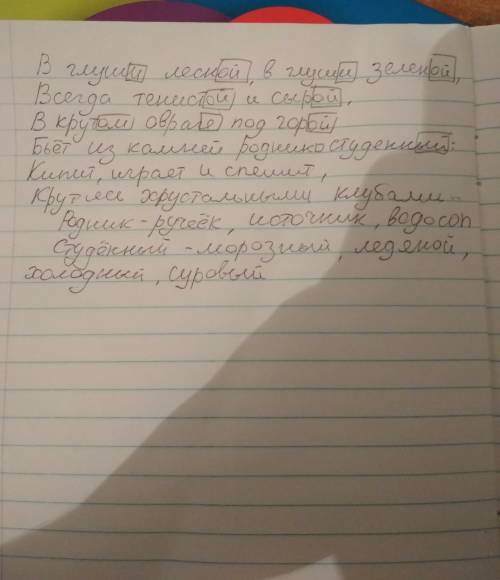 В глуши лесной, в глуши зеленой,
Всегда тенистой и сырой,
В крутом овраге под горой
Бьёт из камней родник студенный:
Кипит, играет и спешит,
Крутясь хрустальными клубами..
Родник - ручеёк, источник, водосоп
Студённый - морозный, ледяной,
холодный, суровый